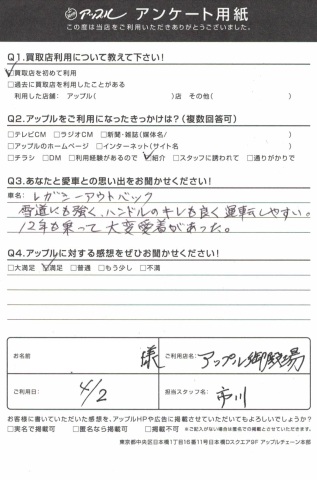 アップル アンケート用紙
この度は当店をご利用いただきありがとうございました。
Q1.買取店利用について教えて下さい!
☑買取店を初めて利用
□過去に買取店を利用したことがある
利用した店舗: アップル( )店 その他( )
Q2.アップルをご利用になったきっかけは?(複数回答可)
□テレビCM □ラジオCM □新聞・雑誌(媒体名/ )
□アップルのホームページ □インターネット(サイト名 )
□チラシ □DM □利用経験があるので ☑紹介 □スタッフに誘われて □通りがかりで
Q3.あなたと愛車との思い出をお聞かせください!
車名: レガシーアウトバック
雪道にも強く、ハンドルのキレも良く運転しやすい。
12年も乗って大変愛着があった。
Q4.アップルに対する感想をぜひお聞かせください!
□大満足 ☑満足 □普通 □もう少し □不満
お名前 様 ご利用店名: アップル御殿場
ご利用日: 4/2 担当スタッフ名: 市川
お客様に書いていただいた感想を、アップルHPや広告に掲載させていただいてもよろしいでしょうか?
□実名で掲載可 □匿名なら掲載可 □掲載不可 ※ご記入がない場合は匿名での掲載とさせていただきます。
東京都中央区日本橋1丁目16番11号日本橋Dスクエア9F アップルチェーン本部